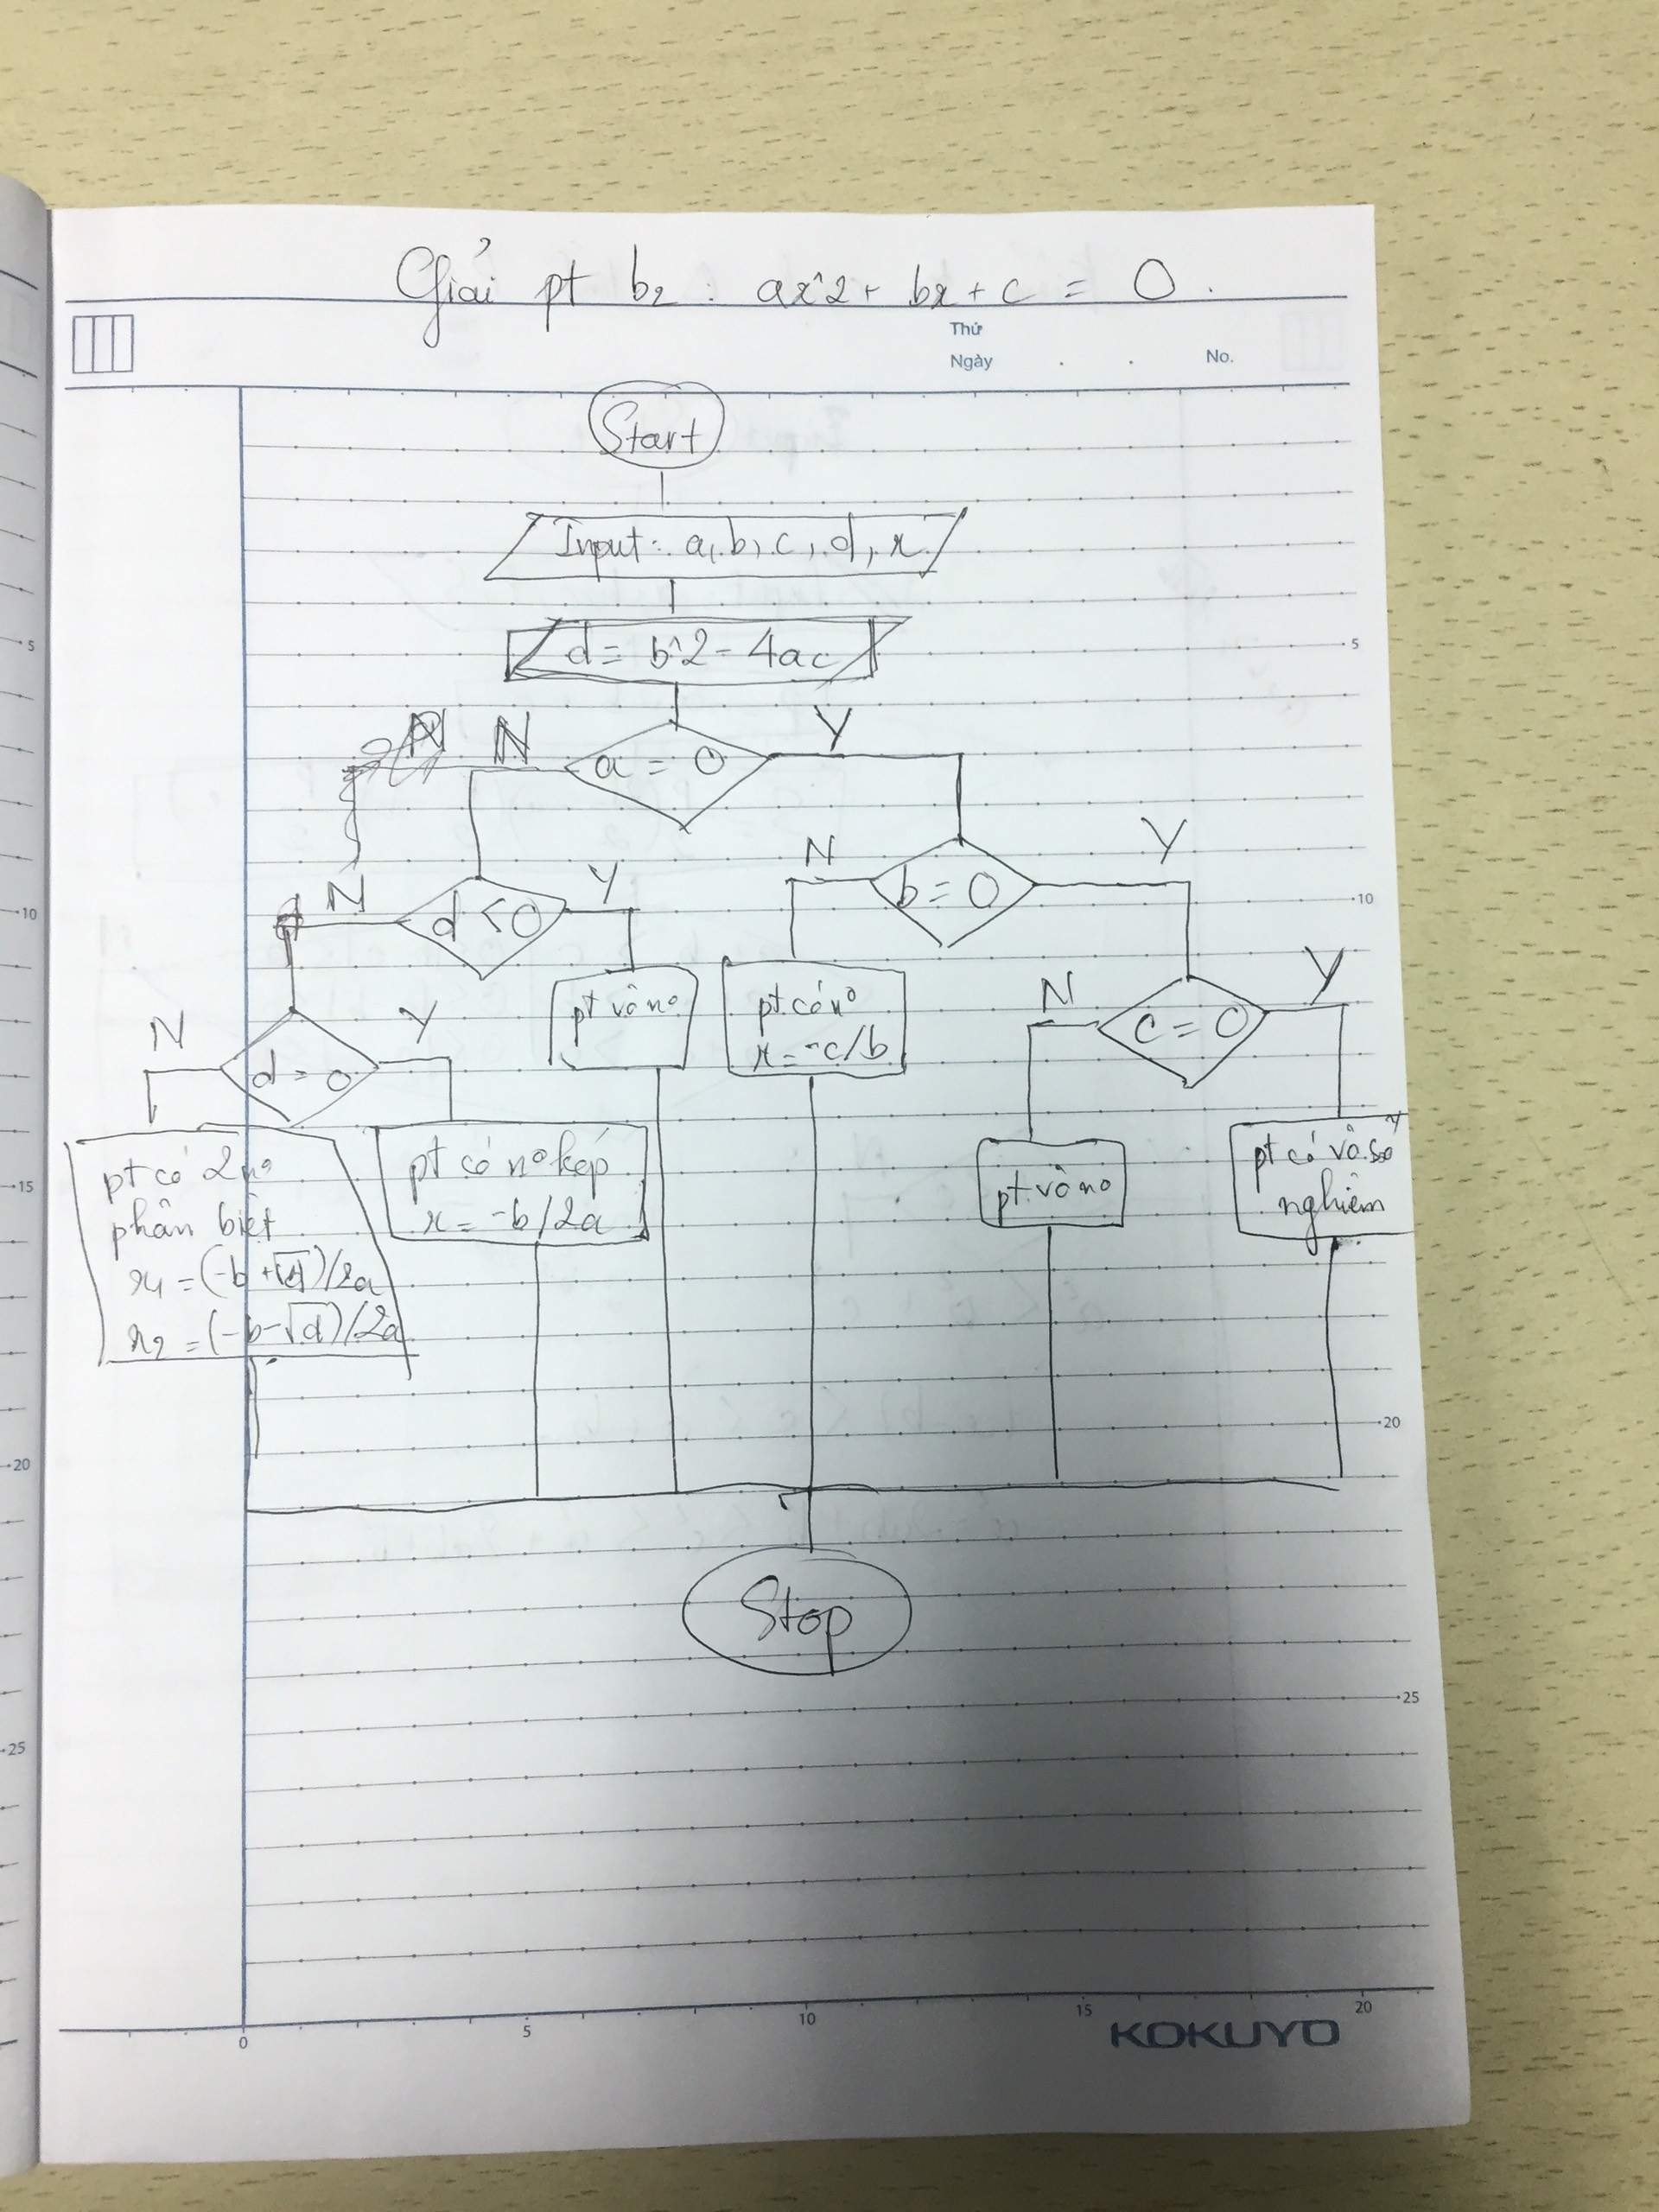 Giải pt b2 : ax^2 + bx + c = 0.
Thứ
Ngày . . No.
Start
Input: a, b, c, d, x
d = b^2 - 4ac
N N a = 0 Y
N d < 0 Y
N b = 0 Y
pt vô no
pt có no
x = -c/b
N c = 0 Y
N d = 0 Y
pt có 2 no
phân biệt
x1 = (-b + √d)/2a
x2 = (-b - √d)/2a
pt có no kép
x = -b/2a
pt vô no
pt có vô số
nghiệm
Stop
5
10
15
20
25
5
10
20
25
0 5 10 15 20
KOKUYO